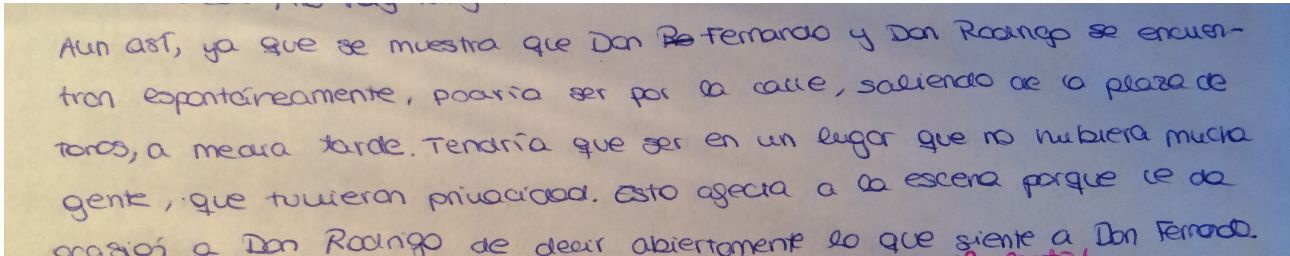 Aun así, ya que se muestra que Don Fernando y Don Rodrigo se encuen-
tran espontáneamente, podría ser por la calle, saliendo de la plaza de
toros, a media tarde. Tendría que ser en un lugar que no hubiera mucha
gente, que tuvieran privacidad. Esto afecta a la escena porque le da
ocasión a Don Rodrigo de decir abiertamente lo que siente a Don Fernando.